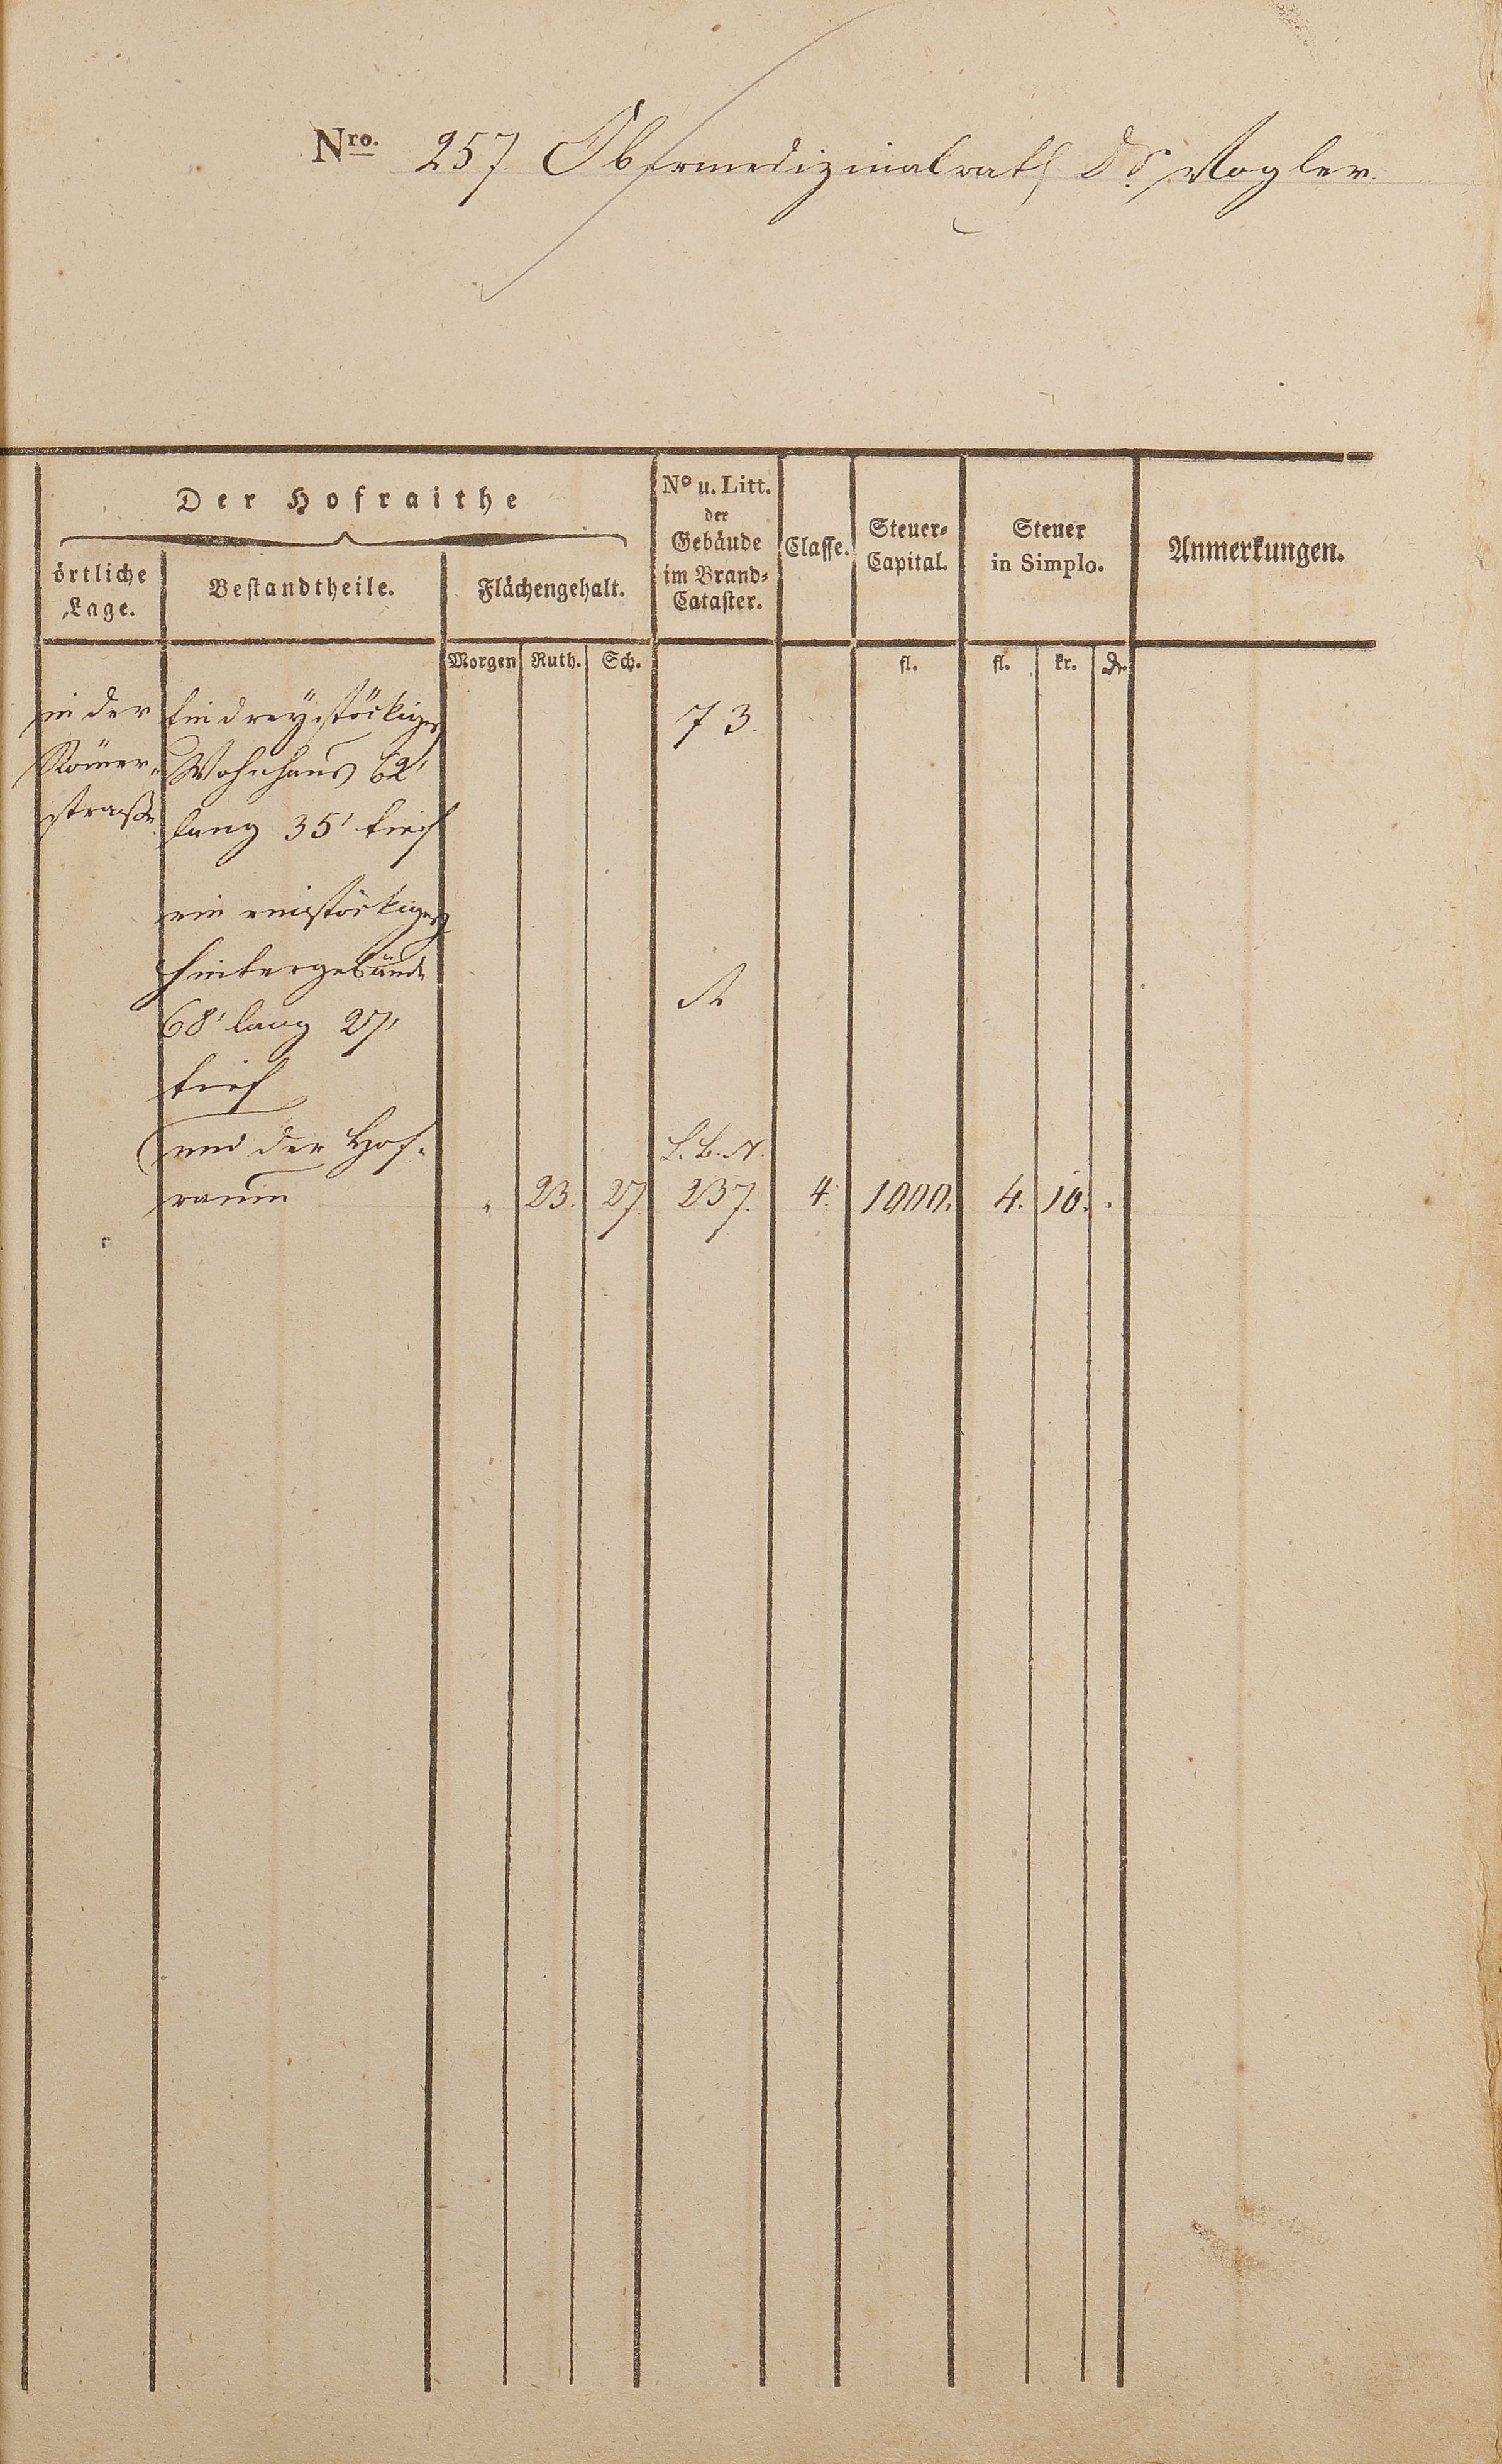 Nro. 257. Obermedizinalrath Dr. Vogler.
Der Hofraithe
örtliche Lage.
Bestandtheile.
Flächengehalt.
No u. Litt. der Gebäude im Brand-Cataster.
Classe.
Steuer-Capital.
Steuer in Simplo.
Anmerkungen.
Morgen Ruth. Sch. fl. fl. kr. d.
in der Ein dreystöckiges 73.
Römer- Wohnhaus 62'
straße lang 35' tief
ein einstöckiges
Hintergebäude A
68' lang 27'
tief
und der Hof- L. B. N.
raum " 23. 27. 237. 4. 1000. 4. 10. .